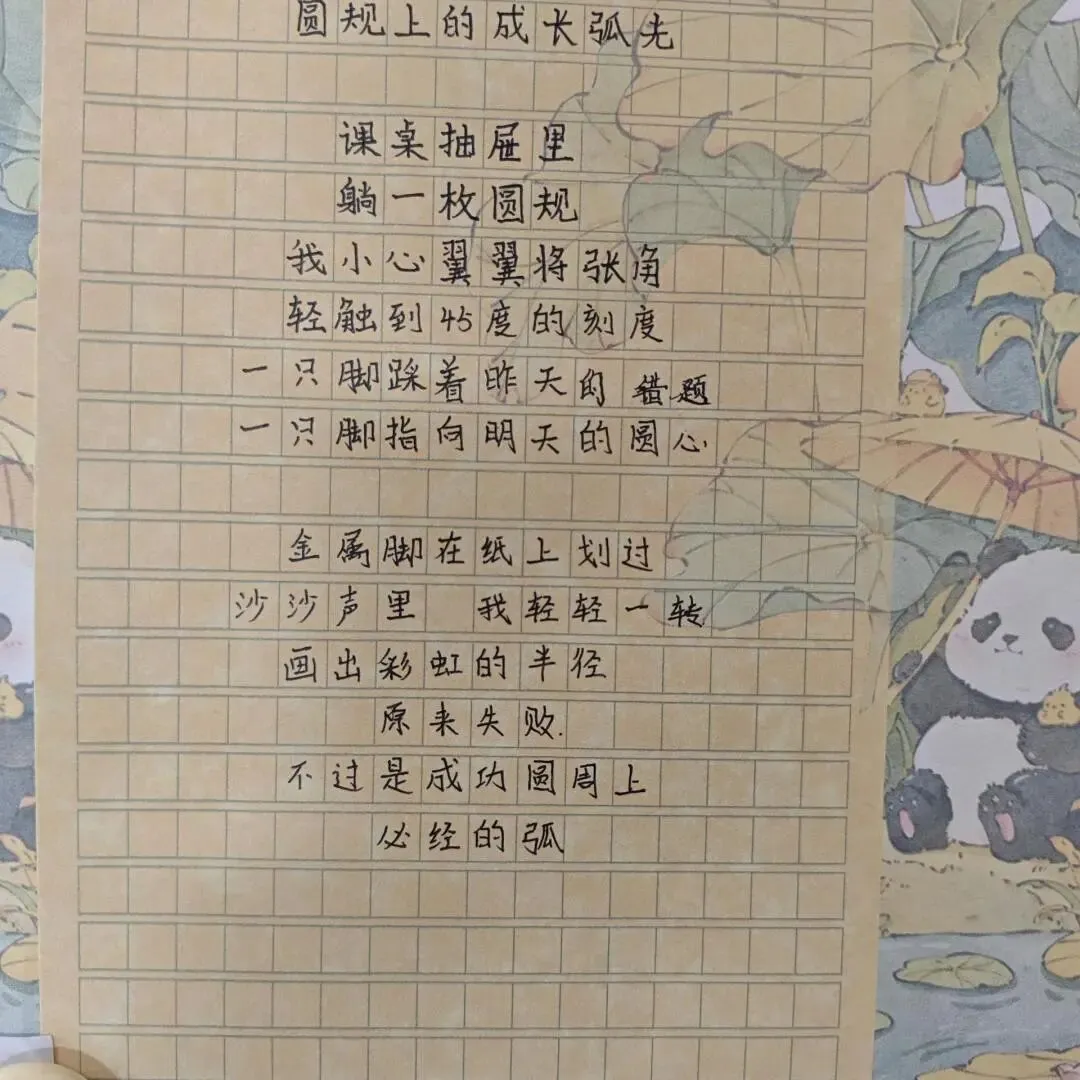 圆规上的成长弧光
课桌抽屉里
躺一枚圆规
我小心翼翼将张角
轻触到45度的刻度
一只脚踩着昨天的错题
一只脚指向明天的圆心
金属脚在纸上划过
沙沙声里 我轻轻一转
画出彩虹的半径
原来失败.
不过是成功圆周上
必经的弧